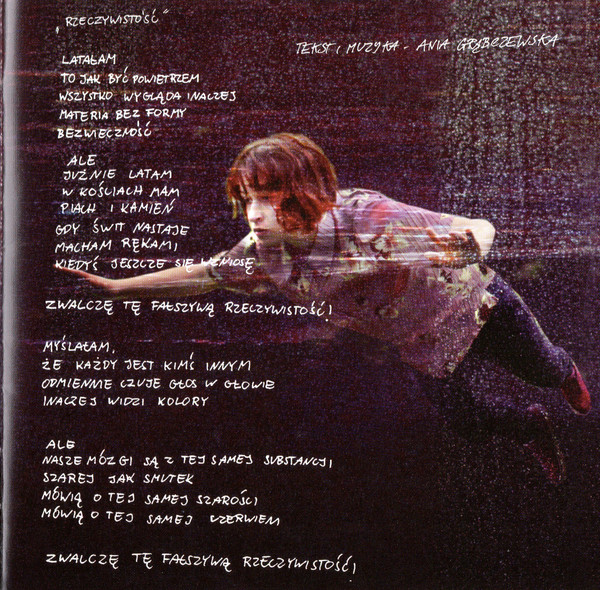 „RZECZYWISTOŚĆ"
TEKST I MUZYKA - ANIA GRĄBCZEWSKA
LATAŁAM
TO JAK BYĆ POWIETRZEM
WSZYSTKO WYGLĄDA INACZEJ
MATERIA BEZ FORMY
BEZWIECZNOŚĆ
ALE
JUŻ NIE LATAM
W KOŚCIACH MAM
PIACH I KAMIEŃ
GDY ŚWIT NASTAJE
MACHAM RĘKAMI
KIEDYŚ JESZCZE SIĘ WZNIOSĘ
ZWALCZĘ TĘ FAŁSZYWĄ RZECZYWISTOŚĆ!
MYŚLAŁAM,
ŻE KAŻDY JEST KIMŚ INNYM
ODMIENNIE CZUJE GŁOS W GŁOWIE
INACZEJ WIDZI KOLORY
ALE
NASZE MÓZGI SĄ Z TEJ SAMEJ SUBSTANCJI
SZAREJ JAK SMUTEK
MÓWIĄ O TEJ SAMEJ SZAROŚCI
MÓWIĄ O TEJ SAMEJ CZERWIENI
ZWALCZĘ TĘ FAŁSZYWĄ RZECZYWISTOŚĆ!